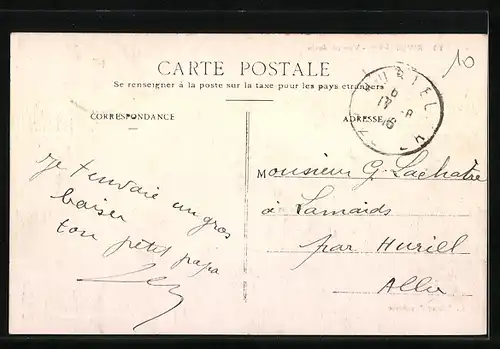 10
CARTE POSTALE
Se renseigner à la poste sur la taxe pour les pays étrangers
CORRESPONDANCE
ADRESSE
HURIEL
Je t'envoie un gros
baiser
ton petit papa
Monsieur G. Lachatre
à Lamaids
par Huriel
Allier